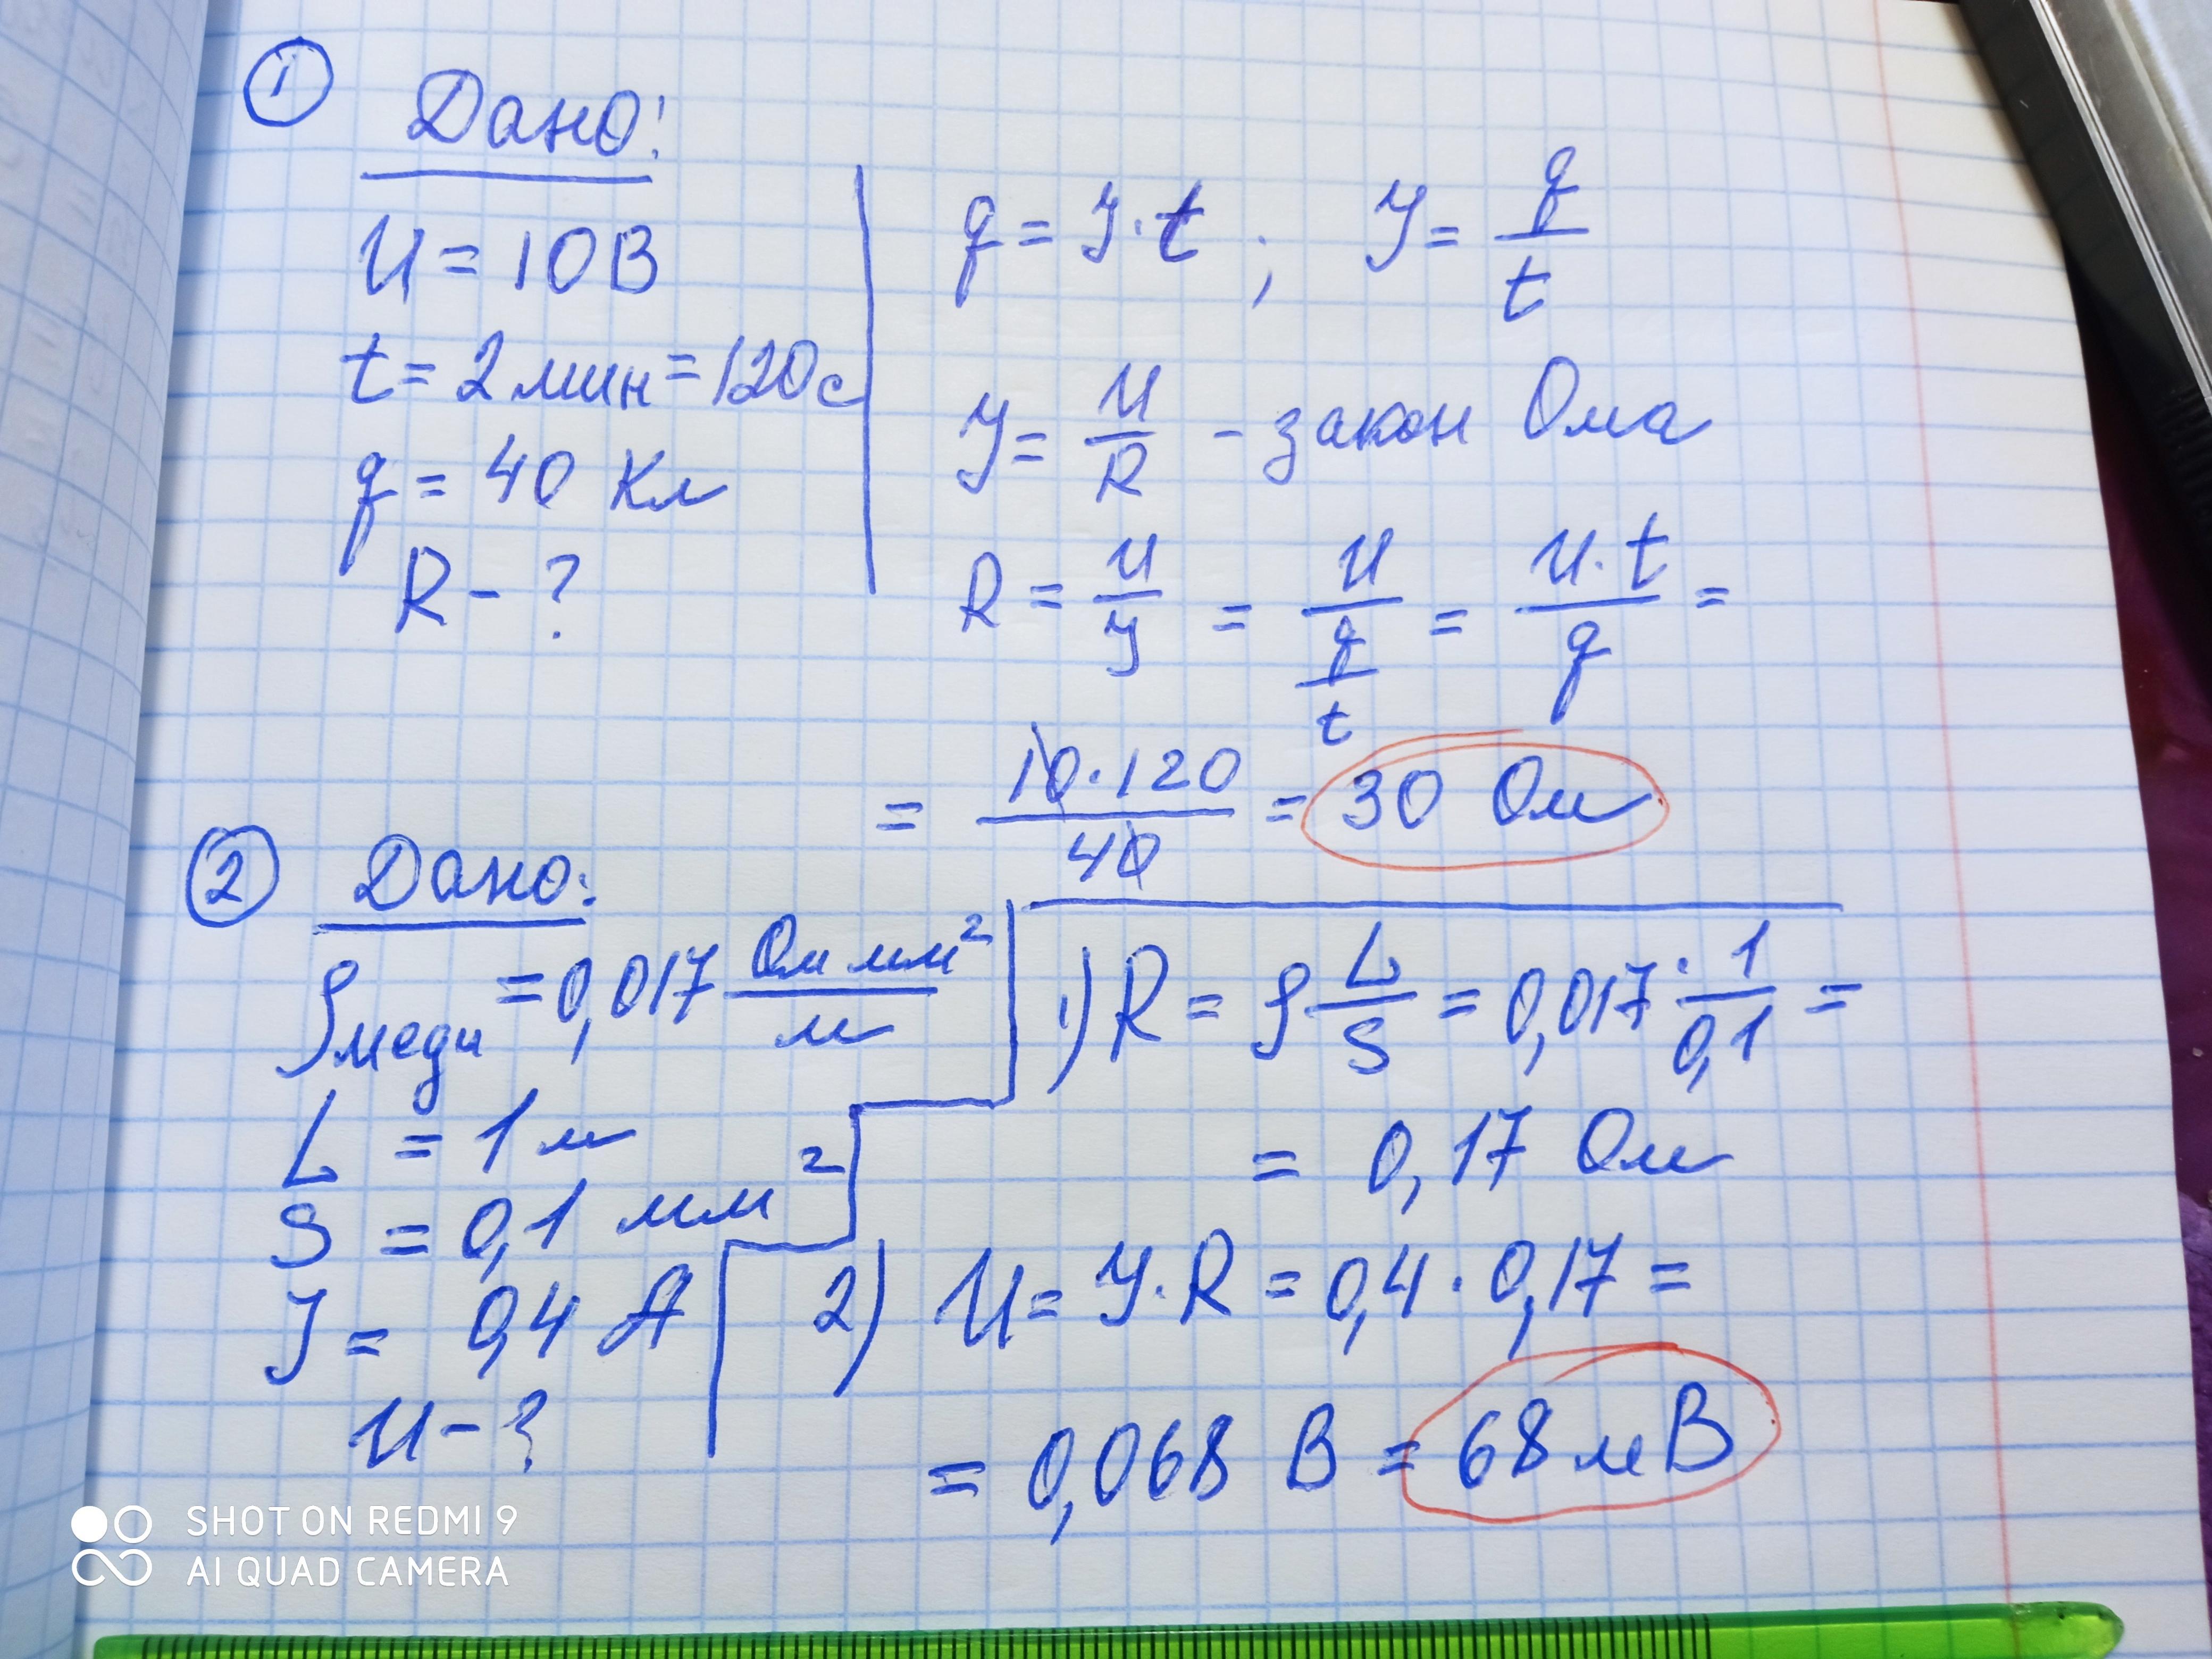 ① Дано:
U = 10В
t = 2 мин = 120с
q = 40 Кл
R - ?
q = I·t ; I = q/t
I = U/R - закон Ома
R = U/I = U/(q/t) = U·t/q =
= 10·120/40 = 30 Ом
② Дано:
ρ меди = 0,017 Ом мм²/м
L = 1 м
S = 0,1 мм²
I = 0,4 А
U - ?
1) R = ρ L/S = 0,017 · 1/0,1 =
= 0,17 Ом
2) U = I·R = 0,4 · 0,17 =
= 0,068 В = 68 мВ
SHOT ON REDMI 9
AI QUAD CAMERA